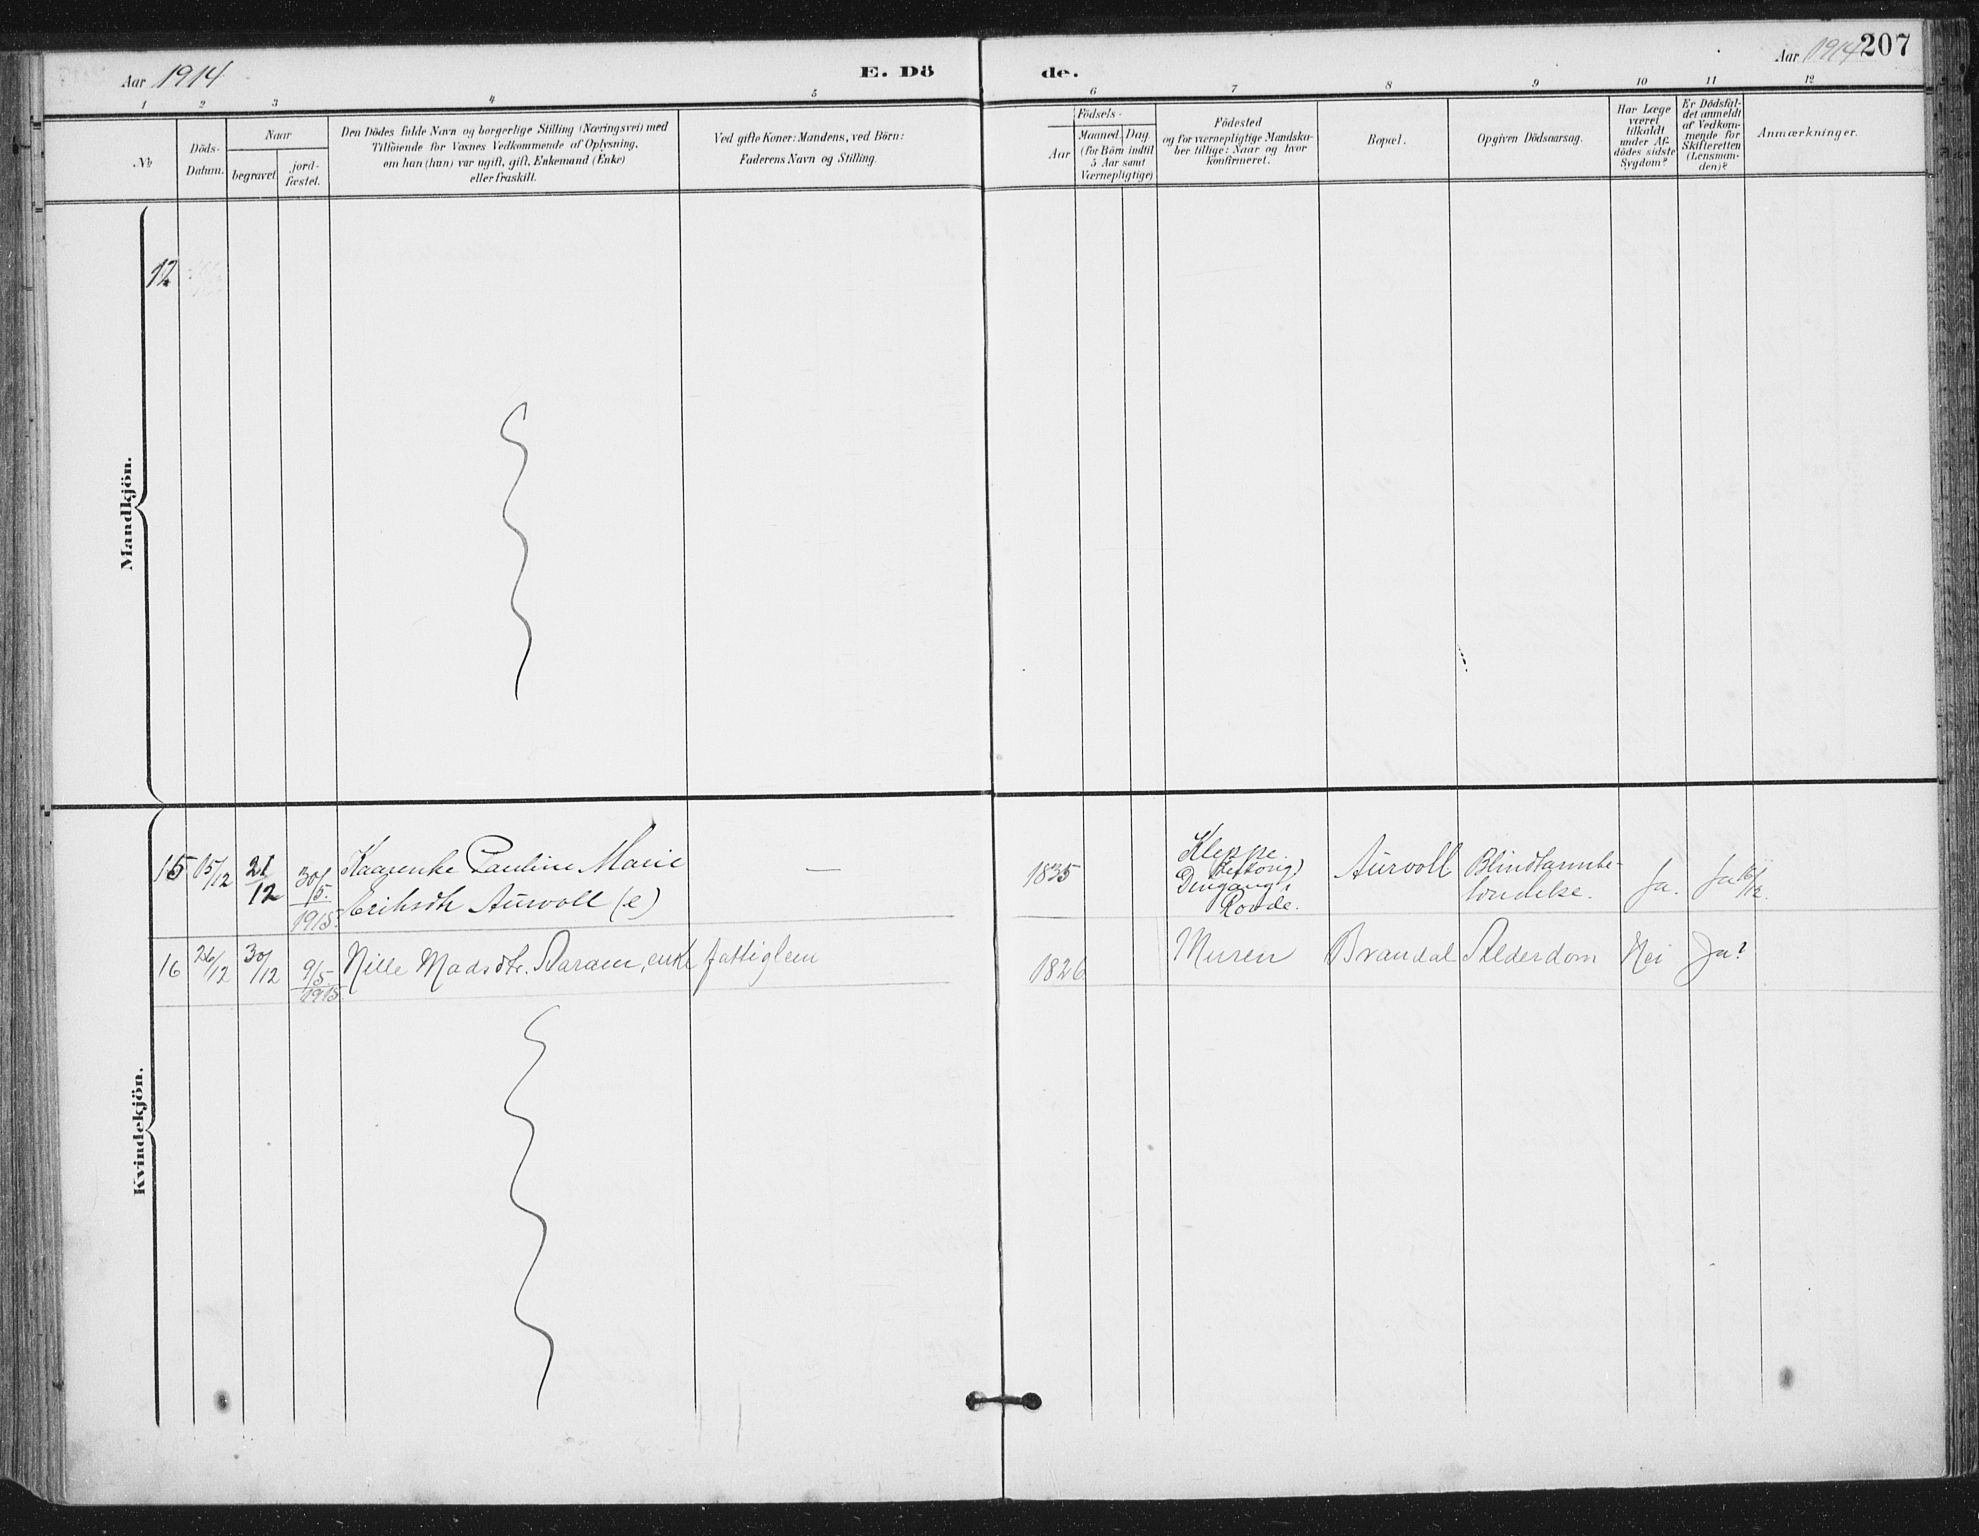 Aar 1914
E. Dö
de.
Aar 1914
207
1 2 3 4 5 6 7 8 9 10 11 12
No
Döds-
Datum.
Naar
begravet.
jord-
fæstet.
Den Dödes fulde Navn og borgerlige Stilling (Næringsvei) med
Tilföiende for Voxnes Vedkommende af Oplysning,
om han (hun) var ugift, gift, Enkemand (Enke)
eller fraskilt.
Ved gifte Koner: Mandens, ved Börn:
Faderens Navn og Stilling.
Födsels-
Aar
Maaned.
Dag.
(for Börn indtil
5 Aar samt
Værnepligtige)
Födested
og for værnepligtige Mandska-
ber tillige: Naar og hvor
konfirmeret.
Bopæl.
Opgiven Dödsaarsag.
Har Læge
været
tilkaldt
under Af-
dödes sidste
Sygdom?
Er Dödsfal-
det anmeldt
af Vedkom-
mende for
Skifteretten
(Lensman-
den)?
Anmærkninger.
Mandkjön.
12
Kvindekjön.
15 15/12 21/12 30/5 1915. Pauline Marie
Eriksdtr Aurvoll (e)
—
1835
Kleppe
Rovde.
Aurvoll
Blindtarmbe-
tændelse.
Ja.
Ja
16 26/12 30/12 9/5 1915 Nille Madsdtr. Aaram, enke fattiglem 1826 Muren Brandal Alderdom Nei Ja?